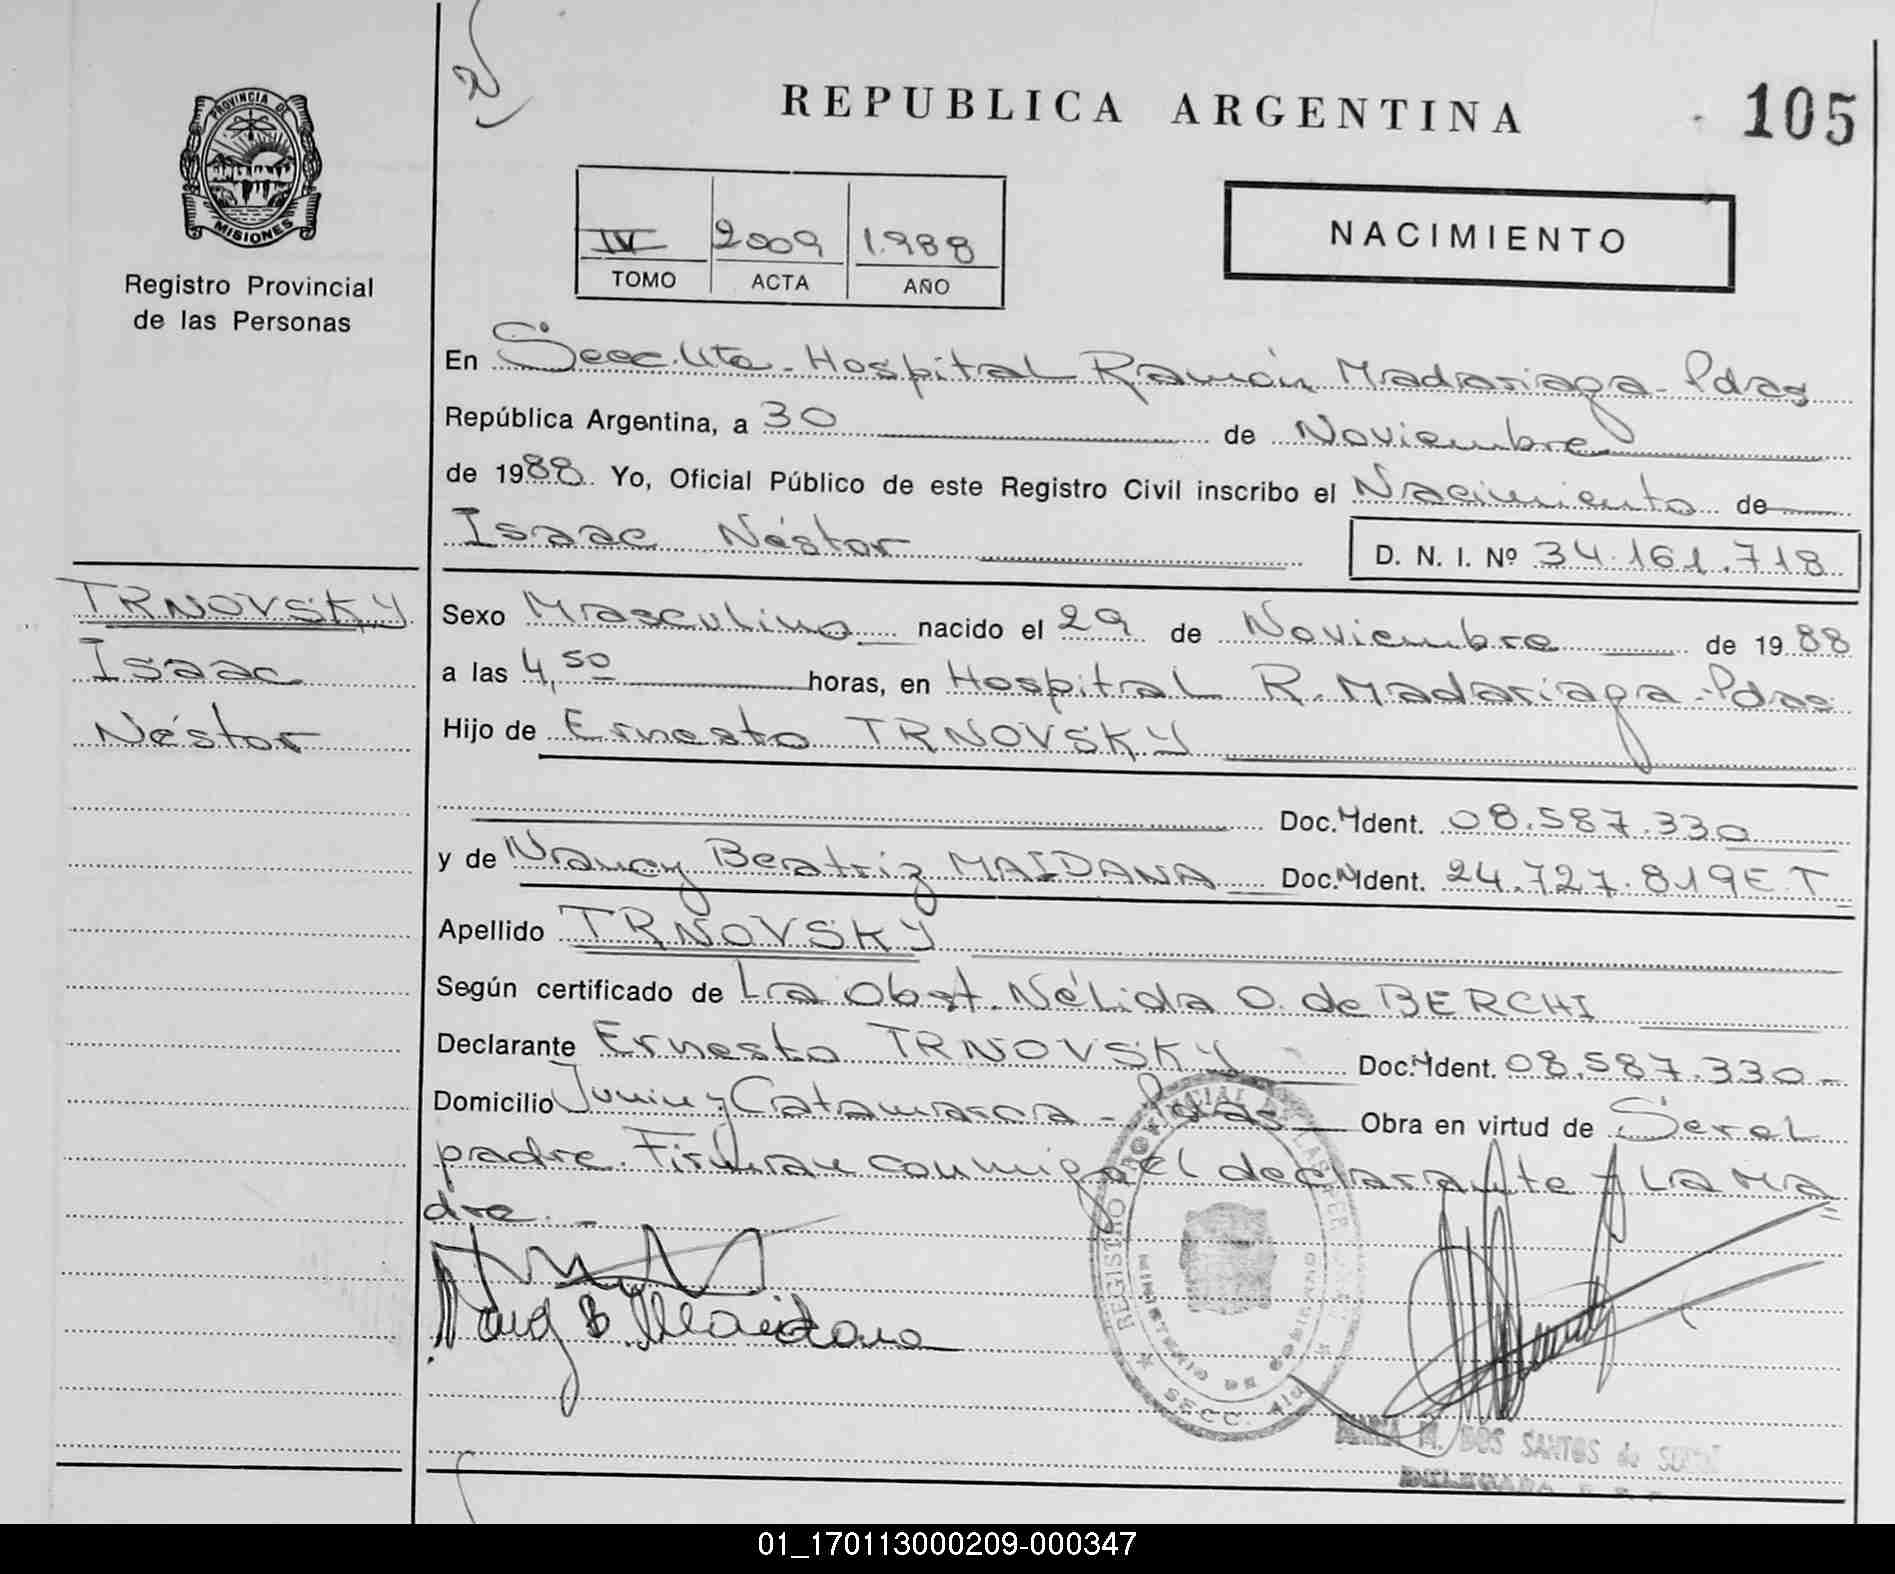 REPUBLICA ARGENTINA
105
PROVINCIA DE
MISIONES
Registro Provincial
de las Personas
IV 2009 1.988
TOMO ACTA AÑO
NACIMIENTO
En Secc. 4ta - Hospital Ramón Madariaga - Pdas
República Argentina, a 30 de Noviembre
de 1988. Yo, Oficial Público de este Registro Civil inscribo el Nacimiento de
Isaac Néstor
D. N. I. Nº 34.161.718
TRNOVSKY
Isaac
Néstor
Sexo Masculino nacido el 29 de Noviembre de 1988
a las 4,50 horas, en Hospital R. Madariaga - Pdas
Hijo de Ernesto TRNOVSKY
Doc. Ident. 08.587.330
y de Nancy Beatriz MAIDANA Doc. Ident. 24.727.819 E.T
Apellido TRNOVSKY
Según certificado de La Obst. Nélida O. de BERCHI
Declarante Ernesto TRNOVSKY Doc. Ident. 08.587.330-
Domicilio Junin y Catamarca - Pdas Obra en virtud de Ser el
padre. Firman conmigo el declarante y LA MA
dre. -
Nancy B. Maidana
REGISTRO PROVINCIAL DE LAS PER
MINISTERIO DE GOBIERNO
SECC. 4ta
MARIA M. DOS SANTOS de
01_170113000209-000347